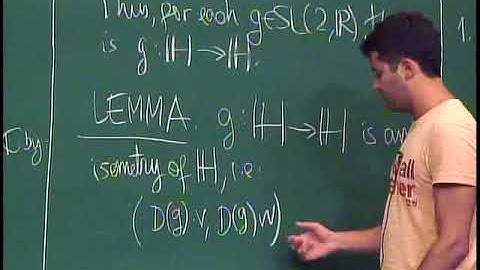 Thus, for each g∈SL(2,ℝ), th
is g: ℍ→ℍ.
1.
LEMMA. g: ℍ→ℍ is an
by:
isometry of ℍ, i.e.
(D(g)·v, D(g)w)